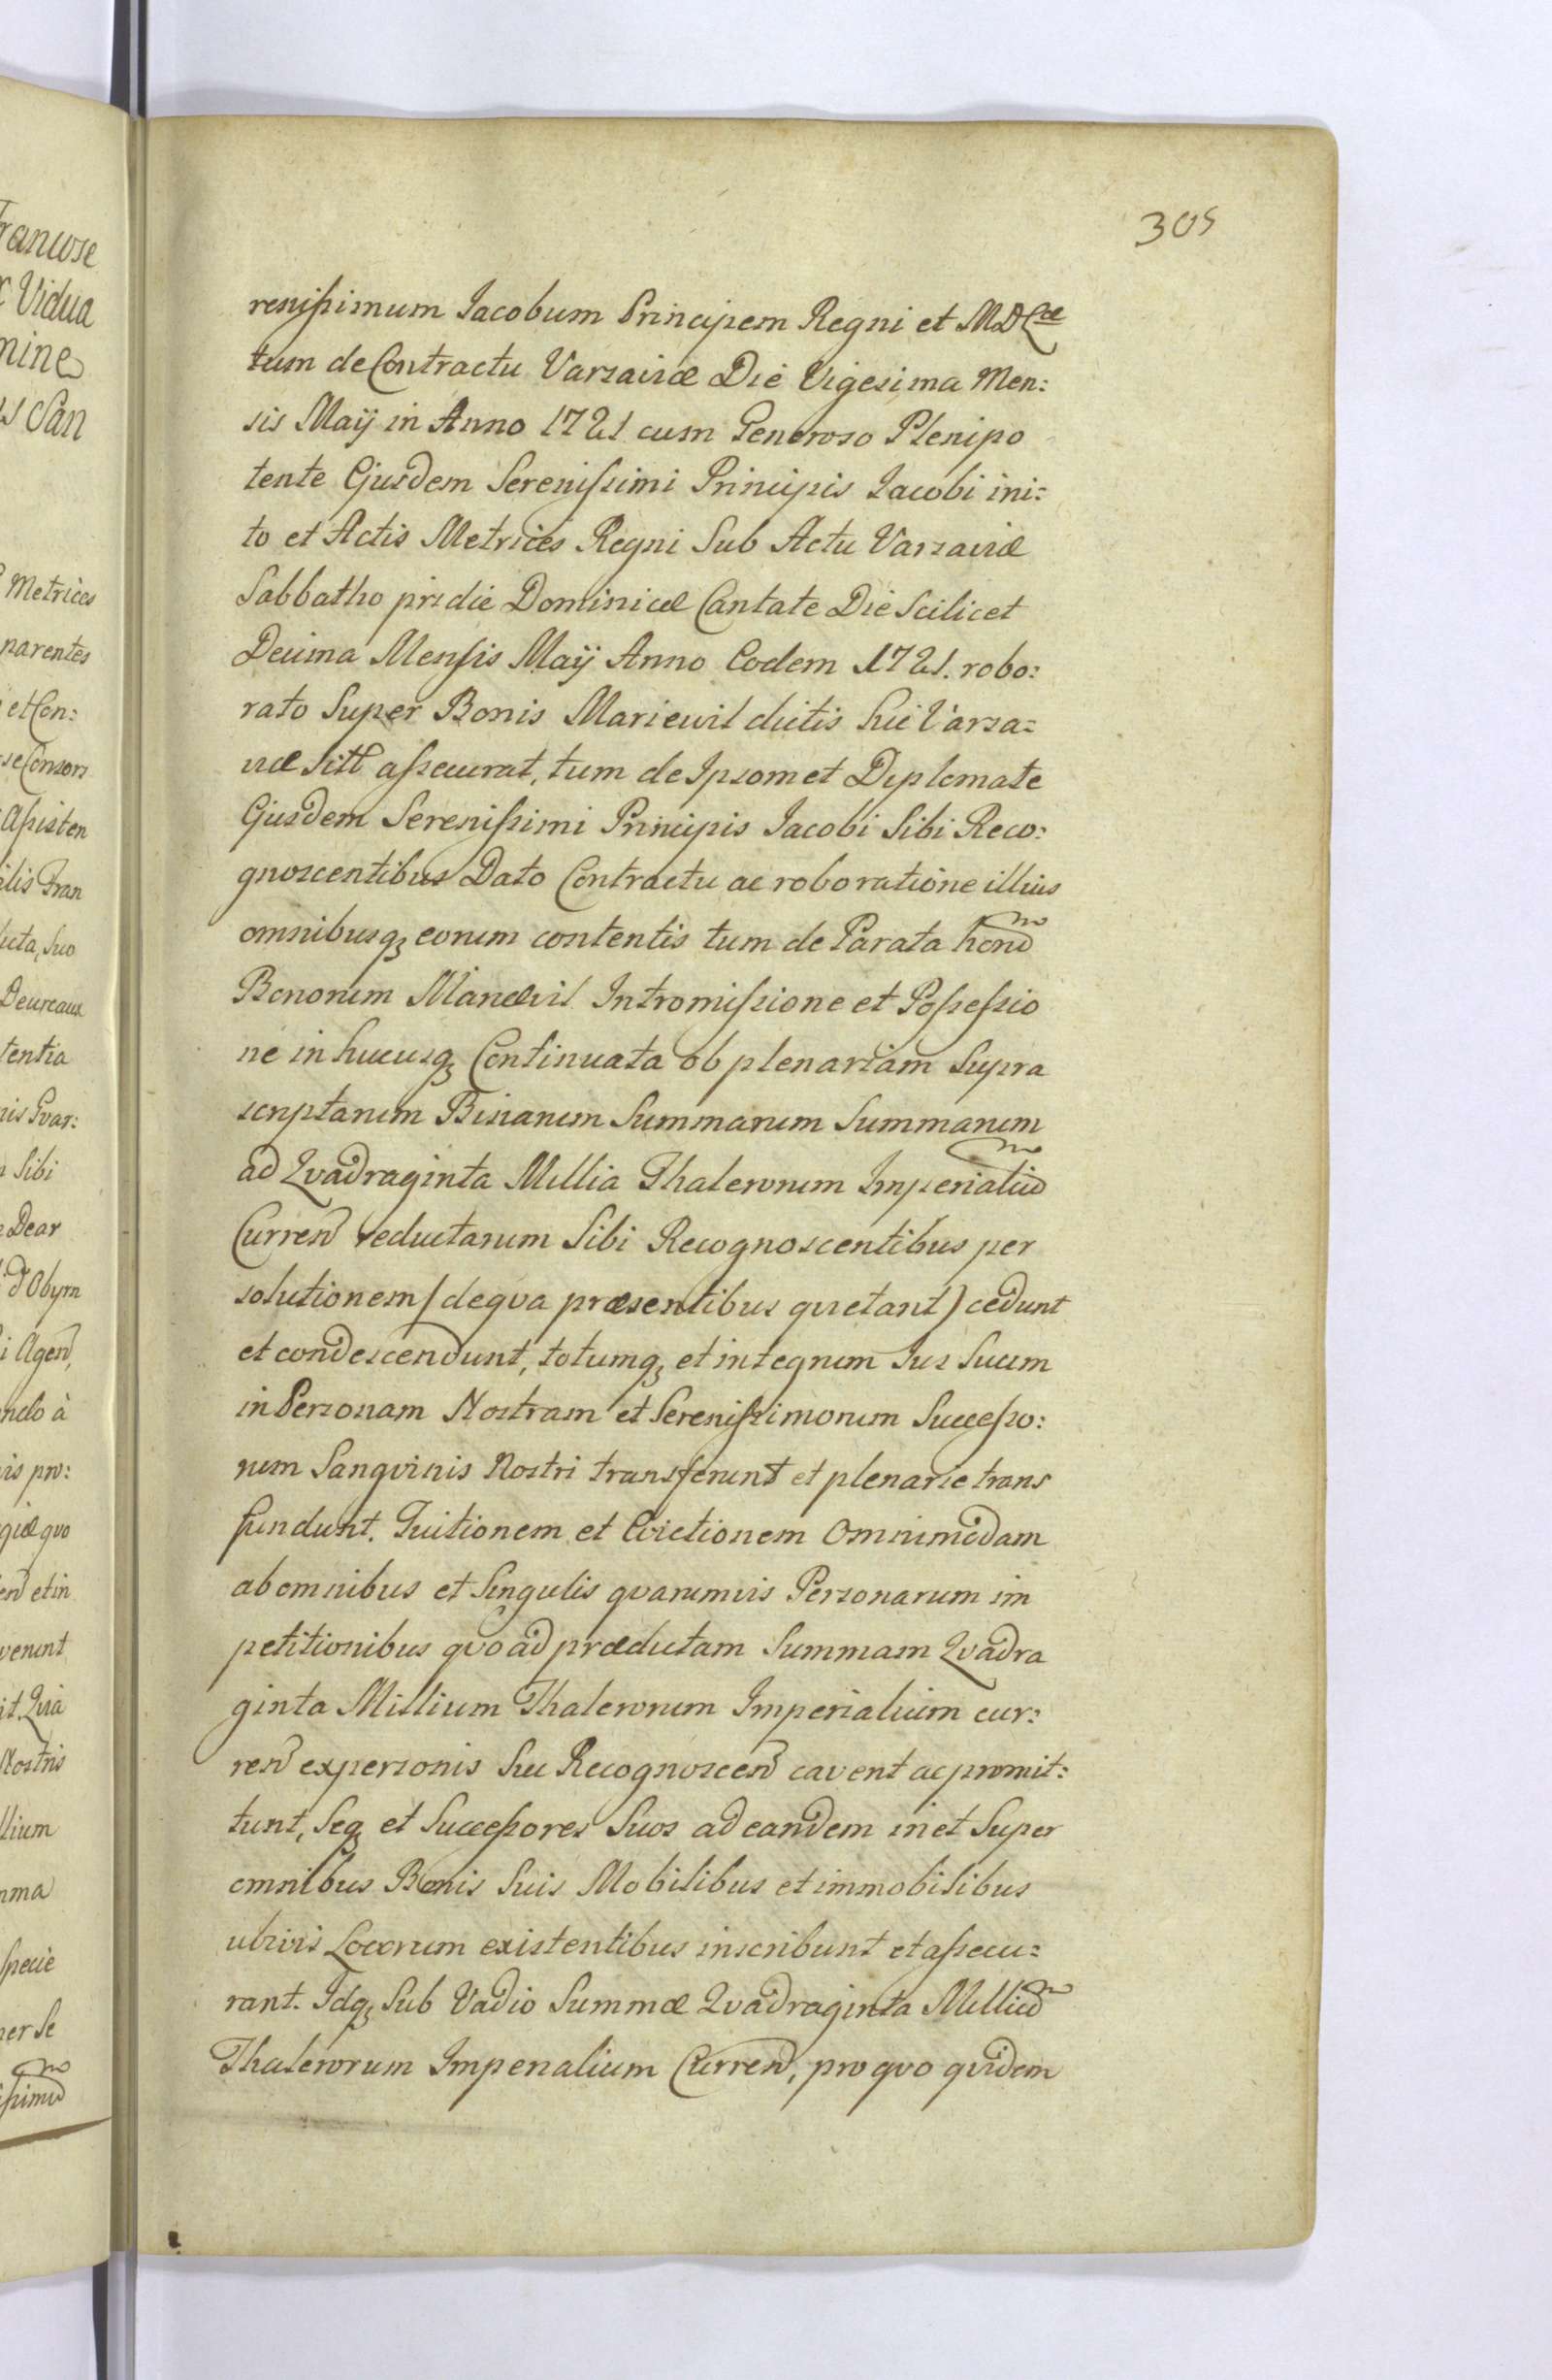 305
renissimum Jacobum Principem Regni et MDLæ
tum de Contractu Varsaviæ Die Vigesima Men:
sis Maÿ in Anno 1721 cum Generoso Plenipo
tente Ejusdem Serenissimi Principis Jacobi ini:
to et Actis Metrices Regni Sub Actu Varsaviæ
Sabbatho pridie Dominicæ Cantate Die Scilicet
Decima Mensis Maÿ Anno Eodem 1721. robo:
rato Super Bonis Marievil dictis hic Varsa:
viæ Sitt assecurat, tum de Ipsomet Diplomate
Ejusdem Serenissimi Principis Jacobi Sibi Reco:
gnoscentibus Dato Contractu ac roboratione illius
omnibusq3 eorum contentis tum de Parata
Bonorum Intromissione et Possessio
ne in hucusq3 Continuata ob plenariam Supra
scriptarum Binarum Summarum Summarum
ad Qvadraginta Millia Thalerorum Imperialiũ
Curren reductarum Sibi Recognoscentibus per
solutionem (de qva præsentibus qvietant) cedunt
et condescendunt, totumq3 et integrum Jus Suum
in Personam Nostram et Serenissimorum Successo:
rum Sangvinis Nostri transferunt et plenarie trans
fundunt. Tuitionem et Evictionem Omnimodam
ab omnibus et Singulis qvarumvis Personarum im
petitionibus qvo ad prædictam Summam Qvadra
ginta Millium Thalerorum Imperialium cur:
ren ex personis Suæ Recognoscen cavent ac promit:
tunt, Seq3 et Successores Suos ad eandem in et Super
omnibus Bonis Suis Mobilibus et immobilibus
ubivis Locorum existentibus inscribunt et assecu:
rant. Idq3 Sub Vadio Summæ Qvadraginta Milliũ
Thalerorum Imperialium Curren, pro qvo qvidem